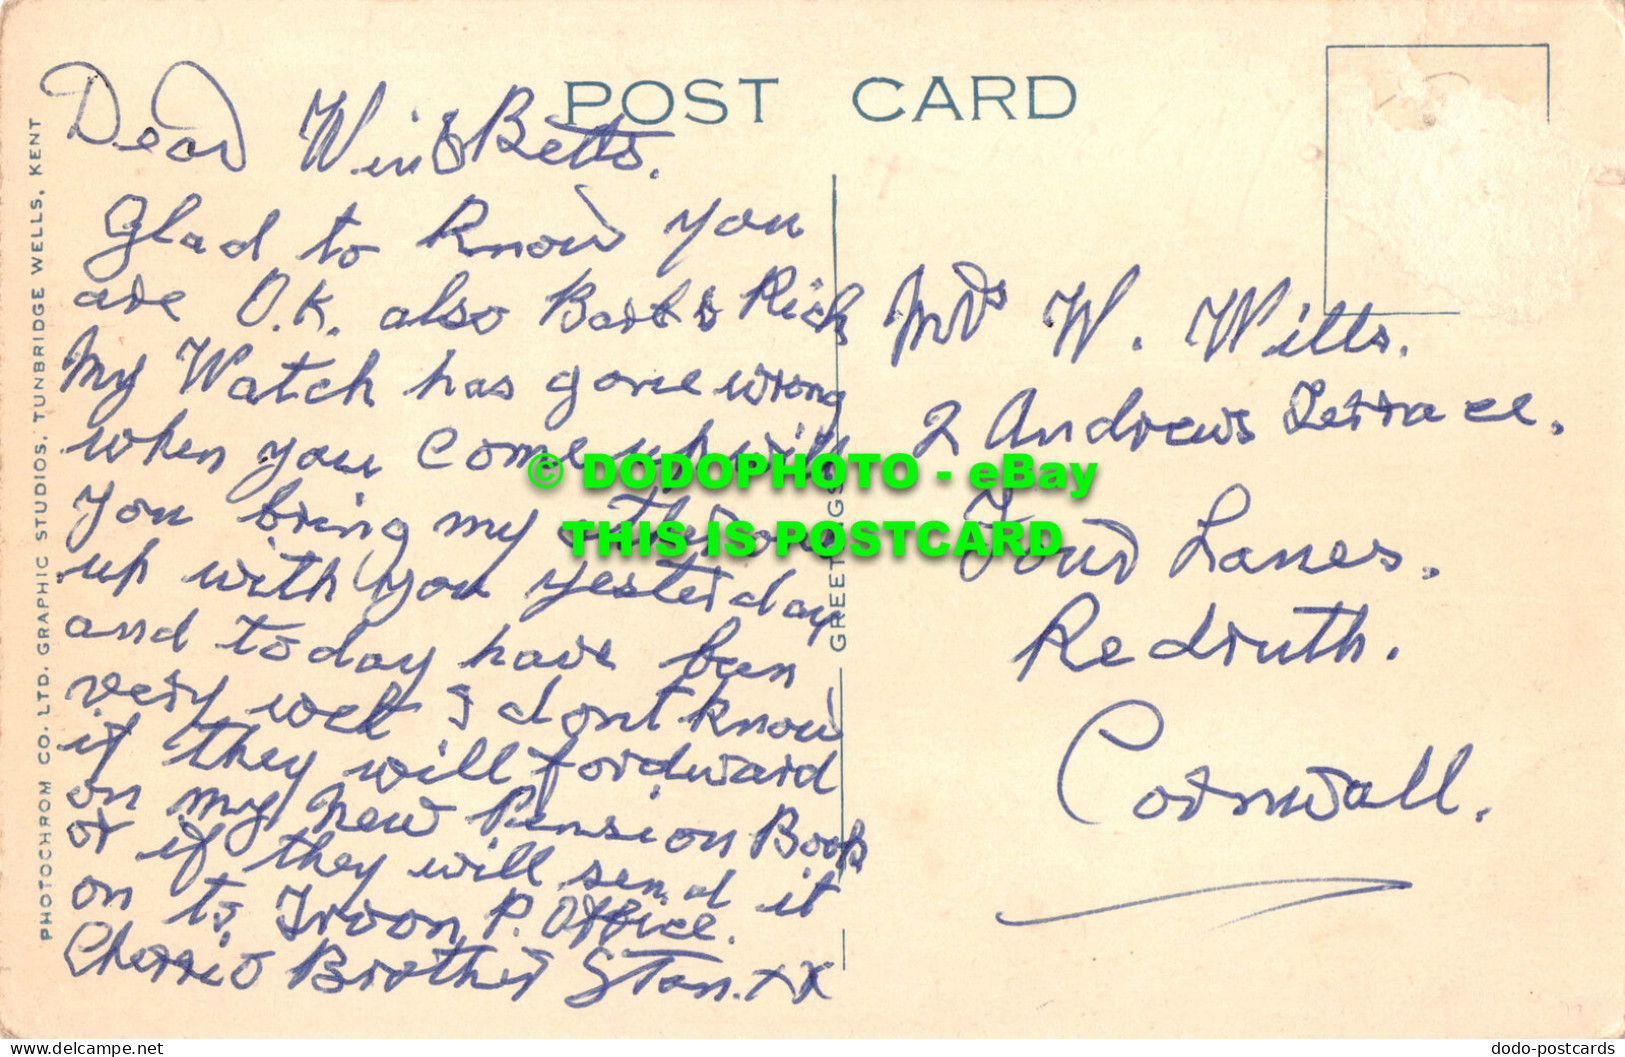 POST CARD
Dear Win & Betts.
Glad to know you
are O.K. also Barb & Rich
My Watch has gone wrong
when you come up will
you bring my other one
up with you yesterday
and today have been
very wet I dont know
if they will fordward
on my new Pension Book
or if they will send it
on to Troon P. Office.
Cherrio Brother Stan. xx
Mrs W. Witts.
2 Andrews Terrace.
Four Lanes.
Redruth.
Cornwall.
GREETINGS
PHOTOCHROM CO. LTD. GRAPHIC STUDIOS, TUNBRIDGE WELLS, KENT
© DODOPHOTO - eBay
THIS IS POSTCARD
www.delcampe.net
dodo-postcards